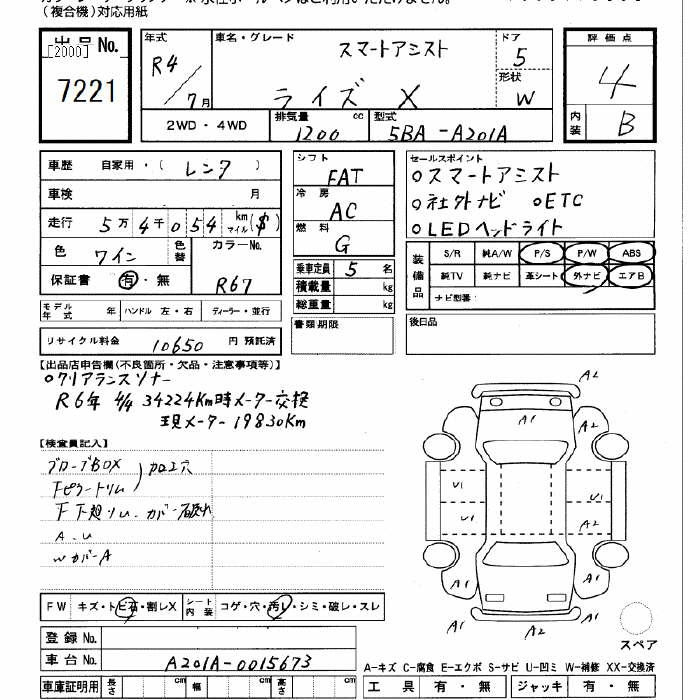 (複合機)対応用紙
出品No.
[2000]
7221
年式
R4/7月
車名・グレード
スマートアシスト
ライズ X
ドア
5
形状
W
評価点
4
内装
B
2WD・4WD
排気量
1200 cc
型式
5BA-A201A
車歴 自家用・(レンタ)
車検 月
走行 5万4千054 km マイル($)
色 ワイン
色替
カラーNo.
R67
保証書 有・無
シフト
FAT
冷房
AC
燃料
G
乗車定員 5 名
積載量 kg
総重量 kg
書類期限
セールスポイント
○スマートアシスト
○社外ナビ ○ETC
○LEDヘッドライト
装備品
S/R 純A/W P/S P/W ABS
純TV 純ナビ 革シート 外ナビ エアB
ナビ型番:
後日品
モデル年式 年 ハンドル 左・右 ディーラー・並行
リサイクル料金 10650 円 預託済
【出品店申告欄(不良箇所・欠品・注意事項等)】
○クリアランスソナー
R6年 4/4 34224Km時メーター交換
現メーター19830Km
【検査員記入】
グローブBOX
加工穴
A.U
WカバーA
A2
A1
A2
U1
U1
U1
A2
A1
A1
A1
A2
スペア
FW キズ・トビ石・割レX
シート内装 コゲ・穴・汚レ・シミ・破レ・スレ
登録No.
車台No. A201A-0015673
車庫証明用 長さ cm 幅 cm 高さ cm
A-キズ C-腐食 E-エクボ S-サビ U-凹ミ W-補修 XX-交換済
工具 有・無 ジャッキ 有・無